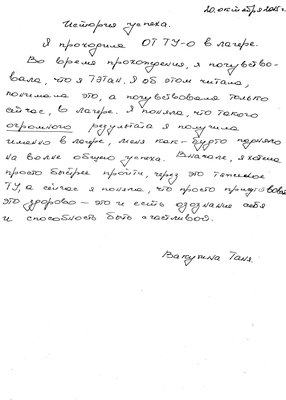 20 октября 2015 г.
История успеха.
Я проходила ОТ ТУ-0 в лагере.
Во время прохождения, я почувство-
вала, что я Тэтан. Я об этом читала,
понимала это, а почувствовала только
сейчас, в лагере. Я поняла, что такого
огромного результата я получила
именно в лагере, меня как-будто подняло
на волне общего успеха. Вначале, я хотела
просто быстрее пройти, через это
ТУ, а сейчас я поняла, что просто
это здорово – это и есть осознание себя
и способность быть счастливой.
Вакулина Таня.